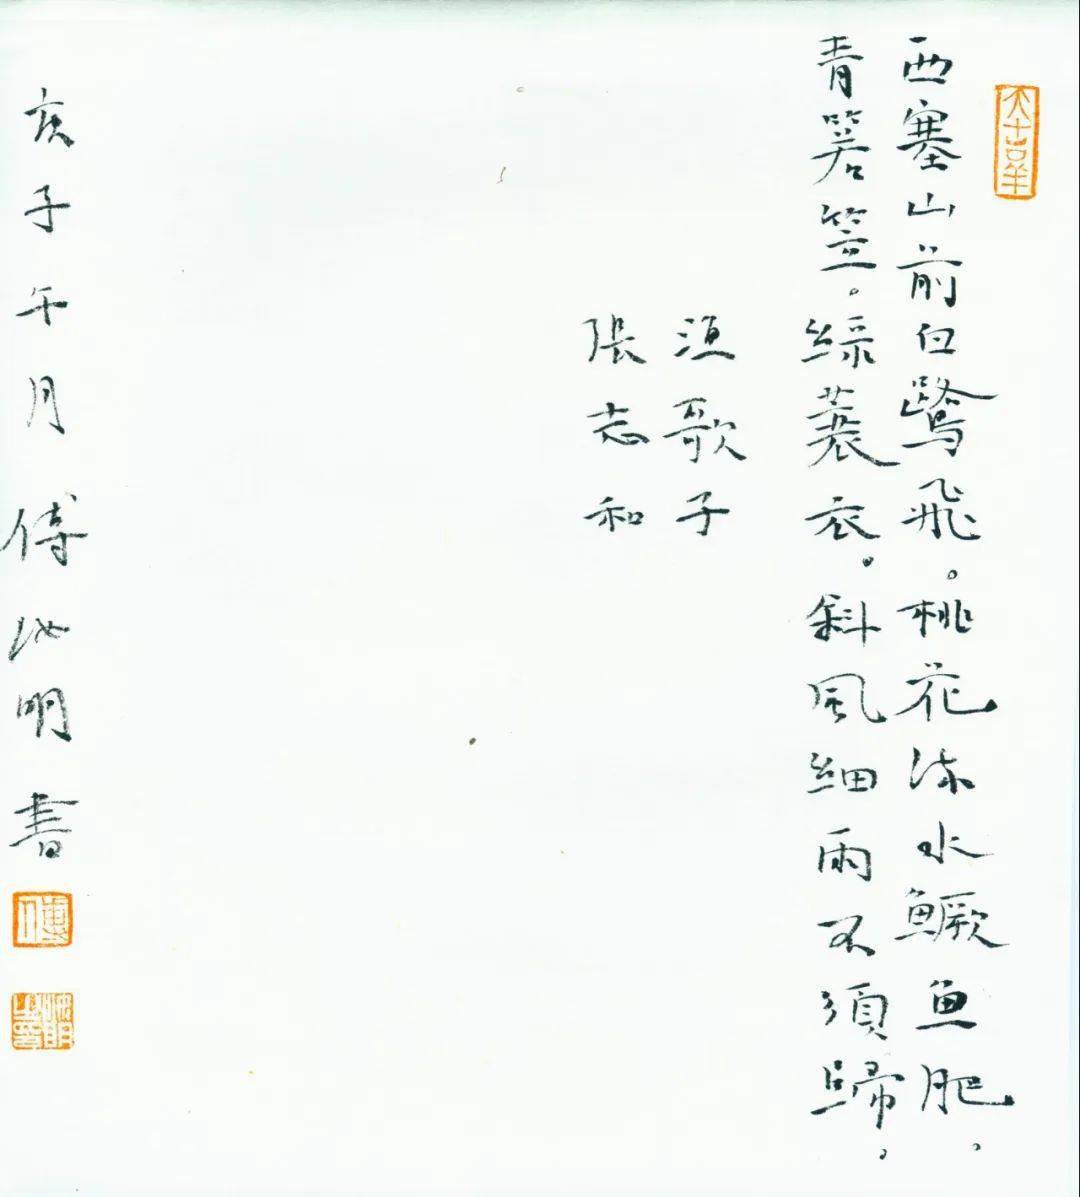 大吉羊
西塞山前白鷺飛。桃花流水鱖魚肥。
青箬笠。綠蓑衣。斜風細雨不須歸。
漁歌子
張志和
庚子午月傅池明書
傅
池明之印